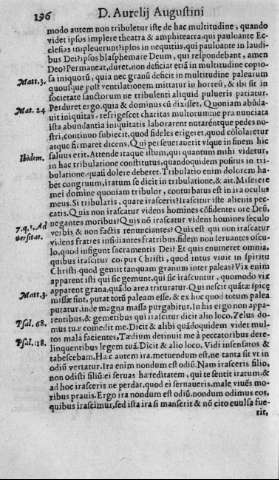 196 D. Aurelij Augustini
modo autem non tribuletur iste de hac multitudine, quando
videt ipsos implere theatra & amphiteatra, qui paulo ante Ec-
clesias impleuerunt: ipsos in nequitijs, qui paulo ante in laudi-
bus Dei: ipsos blasphemare Deum, qui respondebant, amen
Deo? Permaneat, duret, non deficiat etiã in multitudine copio-
Matt.3. sa iniquorũ, quia nec granũ deficit in multitudine palearum
quousque post ventilationem mittatur in horreũ, & ibi sit in
societate sanctorum ne tribulationem aliquã pulueris patiatur.
Mat. 24. Perduret ergo, quia & dominus cũ dixisset. Quoniam abũda-
uit iniquitas, refrigescet charitas multorum: ne pra nunciata
ista abundantia iniquitatis laborarent nutarentque pedes no-
stri, continuo subiecit, quod fideles erigeret, quod cõsolaretur
atque firmaret dicens. Qui perseuerauerit vsque in finem hic
Ibidem. saluus erit. Attende itaque istum, qui quantum mihi videtur,
in hac tribulatione constitutus, quandoquidem positus in tri-
bulatione, quasi dolere deberet. Tribulatio enim dolorem ha-
bet congruum, iratum se dicit in tribulatione, & ait. Miserere
mei domine quoniam tribulor, conturbatus est in ira oculus
meus. Si tribularis, quare irasceris? Irascitur iste alienis pec-
catis. Quis non irascatur videns homines cõfitentes ore Deũ,
negantes moribus? Quis nõ irascatur videns homines seculo
7.q.1. Ad verbis & non factis renunciantes? Quis est qui non irascatur
versitas. videns fratres insidiantes fratribus, fidem non seruantes oscu-
lo, quod infigunt sacramentis Dei? Et quis enumeret omnia,
quibus irascatur corpus Christi, quod intus viuit in spiritu
Christi quod gemit tanquam granum inter paleas? Vix enim
apparent isti qui sic gemunt, qui sic irascuntur, quomodo vix
apparent grana, quãdo area trituratur. Qui nescit quãtæ spicæ
Matt.3. missæ sint, putat totũ paleam esse, & ex hoc quod totum palea
putatur, inde magna massa purgabitur. In his ergo non appa-
rentibus, & gementibus qui irascitur dicit alio loco. Zelus do-
Psal. 68. mus tuæ comedit me. Dicit & alibi quãdo quidem videt mul-
tos mala facientes. Tædium detinuit me à peccatoribus dere-
Psal.118. linquentibus legem tuã. Dicit & alio loco. Vidi insensatos &
tabescebam. Hæc autem ira, metuendum est, ne tanta sit vt in
odiũ vertatur. Ira enim nondum est odiũ. Nam irasceris filio,
non odisti filiũ: ei seruas hæreditatem, qui te sentit iratum: &
ad hoc irasceris ne perdat, quod ei seruaueris, male viuẽs mo-
ribus prauis. Ergo ira nondum est odiũ, nondum odimus eos,
quibus irascimur, sed ista ira si manserit & nõ cito euulsa fue-
rit,